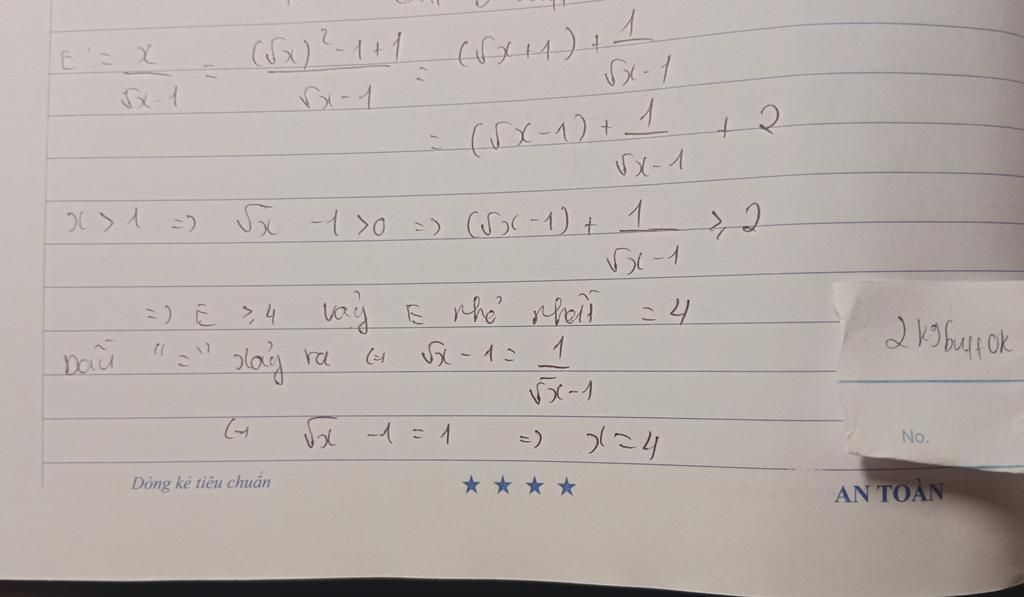 E = x/(√x-1) = ((√x)² - 1 + 1)/(√x - 1) = (√x + 1) + 1/(√x - 1)
= (√x - 1) + 1/(√x - 1) + 2
x > 1 => √x - 1 > 0 => (√x - 1) + 1/(√x - 1) ≥ 2
=> E ≥ 4 vậy E nhỏ nhất = 4
Dấu "=" xảy ra (=) √x - 1 = 1/(√x - 1)
(=) √x - 1 = 1 => x = 4
2kg
No.
Dòng kẻ tiêu chuẩn ★ ★ ★ ★ AN TOÀN